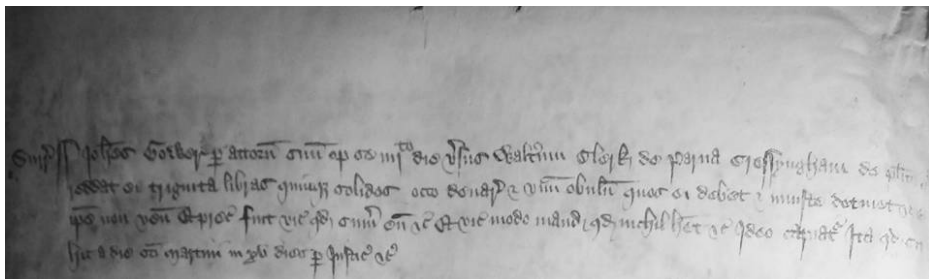 Joh̃es per attorñ suũ op se iiijto die v̉sus Walt̃um Clerk de parua Cressyngham de pl̃ito
reddat ei triginta libras quinq solidos octo denar̃ & vnũ obulũ quos ei debet & iniuste detinet
ip̃e non veñ Et prec̃ fuit vic̃ qd̃ sum̃ eũ &c̃ Et vic̃ modo mand qd̃ nichil h̃et &c̃ Ideo capiat̃ Ita qd̃
hic a die sc̃i Martini in xv dies per Justic̃ &c̃